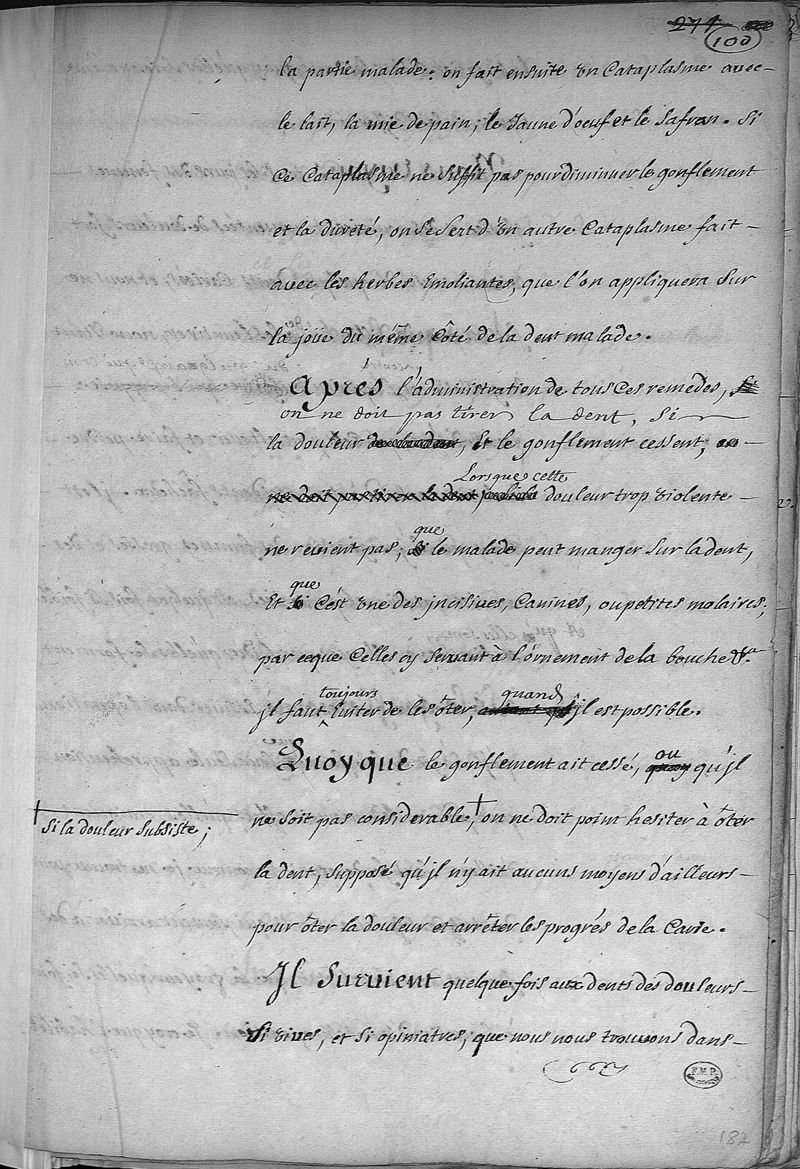 271
100
la partie malade: on fait ensuite un Cataplasme avec
le lait, la mie de pain, le Jaune d'oeuf et le Safran. Si
Ce Cataplasme ne Suffit pas pour diminuer le gonflement
et la dureté, on se Sert d'un autre Cataplasme fait
avec les herbes Emoliantes, que l'on appliquera Sur
la joüe du même Côté de la dent malade.
Aprés l'administration de tous Ces remedes,
on ne doit pas tirer la dent, si
la douleur, Et le gonflement cessent, on
Lorsque cette
ne doit pas tirer la dent douleur trop violente
que
ne revient pas; Si le malade peut manger Sur la dent,
que
Et Si C'est une des jncisives, Canines, ou petites molaires;
par ceque Celles cy servant à l'ornement de la bouche &a
toujours quand
jl faut Eviter de les ôter, autant qu'jl est possible.
ou
Quoy que le gonflement ait cessé, quoy qu'jl
ne soit pas considerable, † on ne doit point hesiter à ôter
† Si la douleur Subsiste;
la dent, supposé qu'jl n'y ait aucuns moyens d'ailleurs
pour ôter la douleur et arrêter les progrés de la Carie.
Jl Survient quelque fois aux dents des douleurs
si vives, et si opiniatres, que nous nous trouvons dans
F.M.P.
182